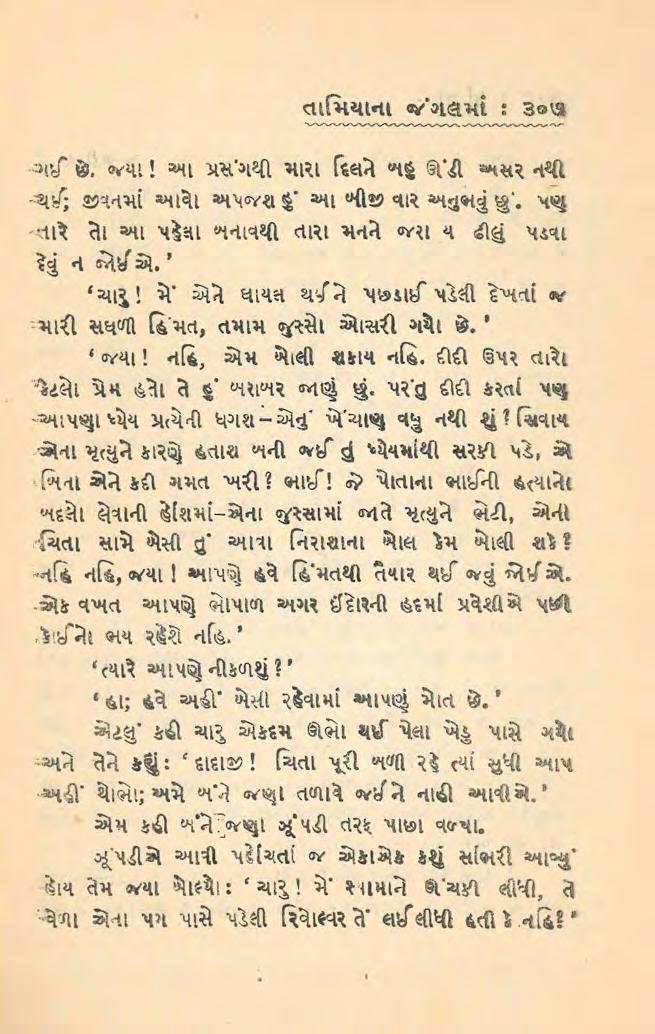 તામિયાના જંગલમાં : ૩૦૭
ગઈ છે. જયા! આ પ્રસંગથી મારા દિલને બહુ ઊંડી અસર નથી
થઈ; જીવનમાં આવો અપજશ હું આ બીજી વાર અનુભવું છું. પણ
તારે તો આ પહેલા બનાવથી તારા મનને જરા ય ઢીલું પડવા
દેવું ન જોઈએ.’
‘ચારુ! મેં એને ઘાયલ થઈને પછડાઈ પડેલી દેખતાં જ
મારી સઘળી હિંમત, તમામ જુસ્સો ઓસરી ગયો છે.’
‘જયા! નહિ, એમ બોલી શકાય નહિ. દીદી ઉપર તારો
કેટલો પ્રેમ હતો તે હું બરાબર જાણું છું. પરંતુ દીદી કરતાં પણ
આપણા ધ્યેય પ્રત્યેની ધગશ–એનું ખેંચાણ વધુ નથી શું? સિવાય
એના મૃત્યુને કારણે હતાશ બની જઈ તું ધ્યેયમાંથી સરકી પડે, એ
બિના એને કદી ગમત ખરી? ભાઈ! જે પોતાના ભાઈની હત્યાનો
બદલો લેવાની હોંશમાં–એના જુસ્સામાં જાતે મૃત્યુને ભેટી, એની
ચિતા સામે બેસી તું આવા નિરાશાના બોલ કેમ બોલી શકે?
નહિ નહિ, જયા! આપણે હવે હિંમતથી તૈયાર થઈ જવું જોઈએ.
એક વખત આપણે ભોપાળ અગર ઈંદોરની હદમાં પ્રવેશીએ પછી
કોઈનો ભય રહેશે નહિ.’
‘ત્યારે આપણે નીકળશું?’
‘હા; હવે અહીં બેસી રહેવામાં આપણું મોત છે.’
એટલું કહી ચારુ એકદમ ઊભો થઈ પેલા ખેડુ પાસે ગયો
અને તેને કહ્યું: ‘દાદાજી! ચિતા પૂરી બળી રહે ત્યાં સુધી આપ
અહીં થોભો; અમે બંને જણા તળાવે જઈને નાહી આવીએ.’
એમ કહી બંને જણા ઝૂંપડી તરફ પાછા વળ્યા.
ઝૂંપડીએ આવી પહોંચતાં જ એકાએક કશું સાંભરી આવ્યું
હોય તેમ જયા બોલ્યો: ‘ચારુ! મેં શ્યામાને ઊંચકી લીધી, તે
વેળા એના પગ પાસે પડેલી રિવોલ્વર તેં લઈ લીધી હતી કે નહિ?’